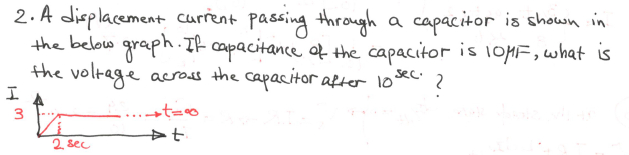 2. A displacement current passing through a capacitor is shown in
the below graph. If capacitance of the capacitor is 10μF, what is
the voltage across the capacitor after 10 sec. ?
I
3
t=∞
t
2 sec